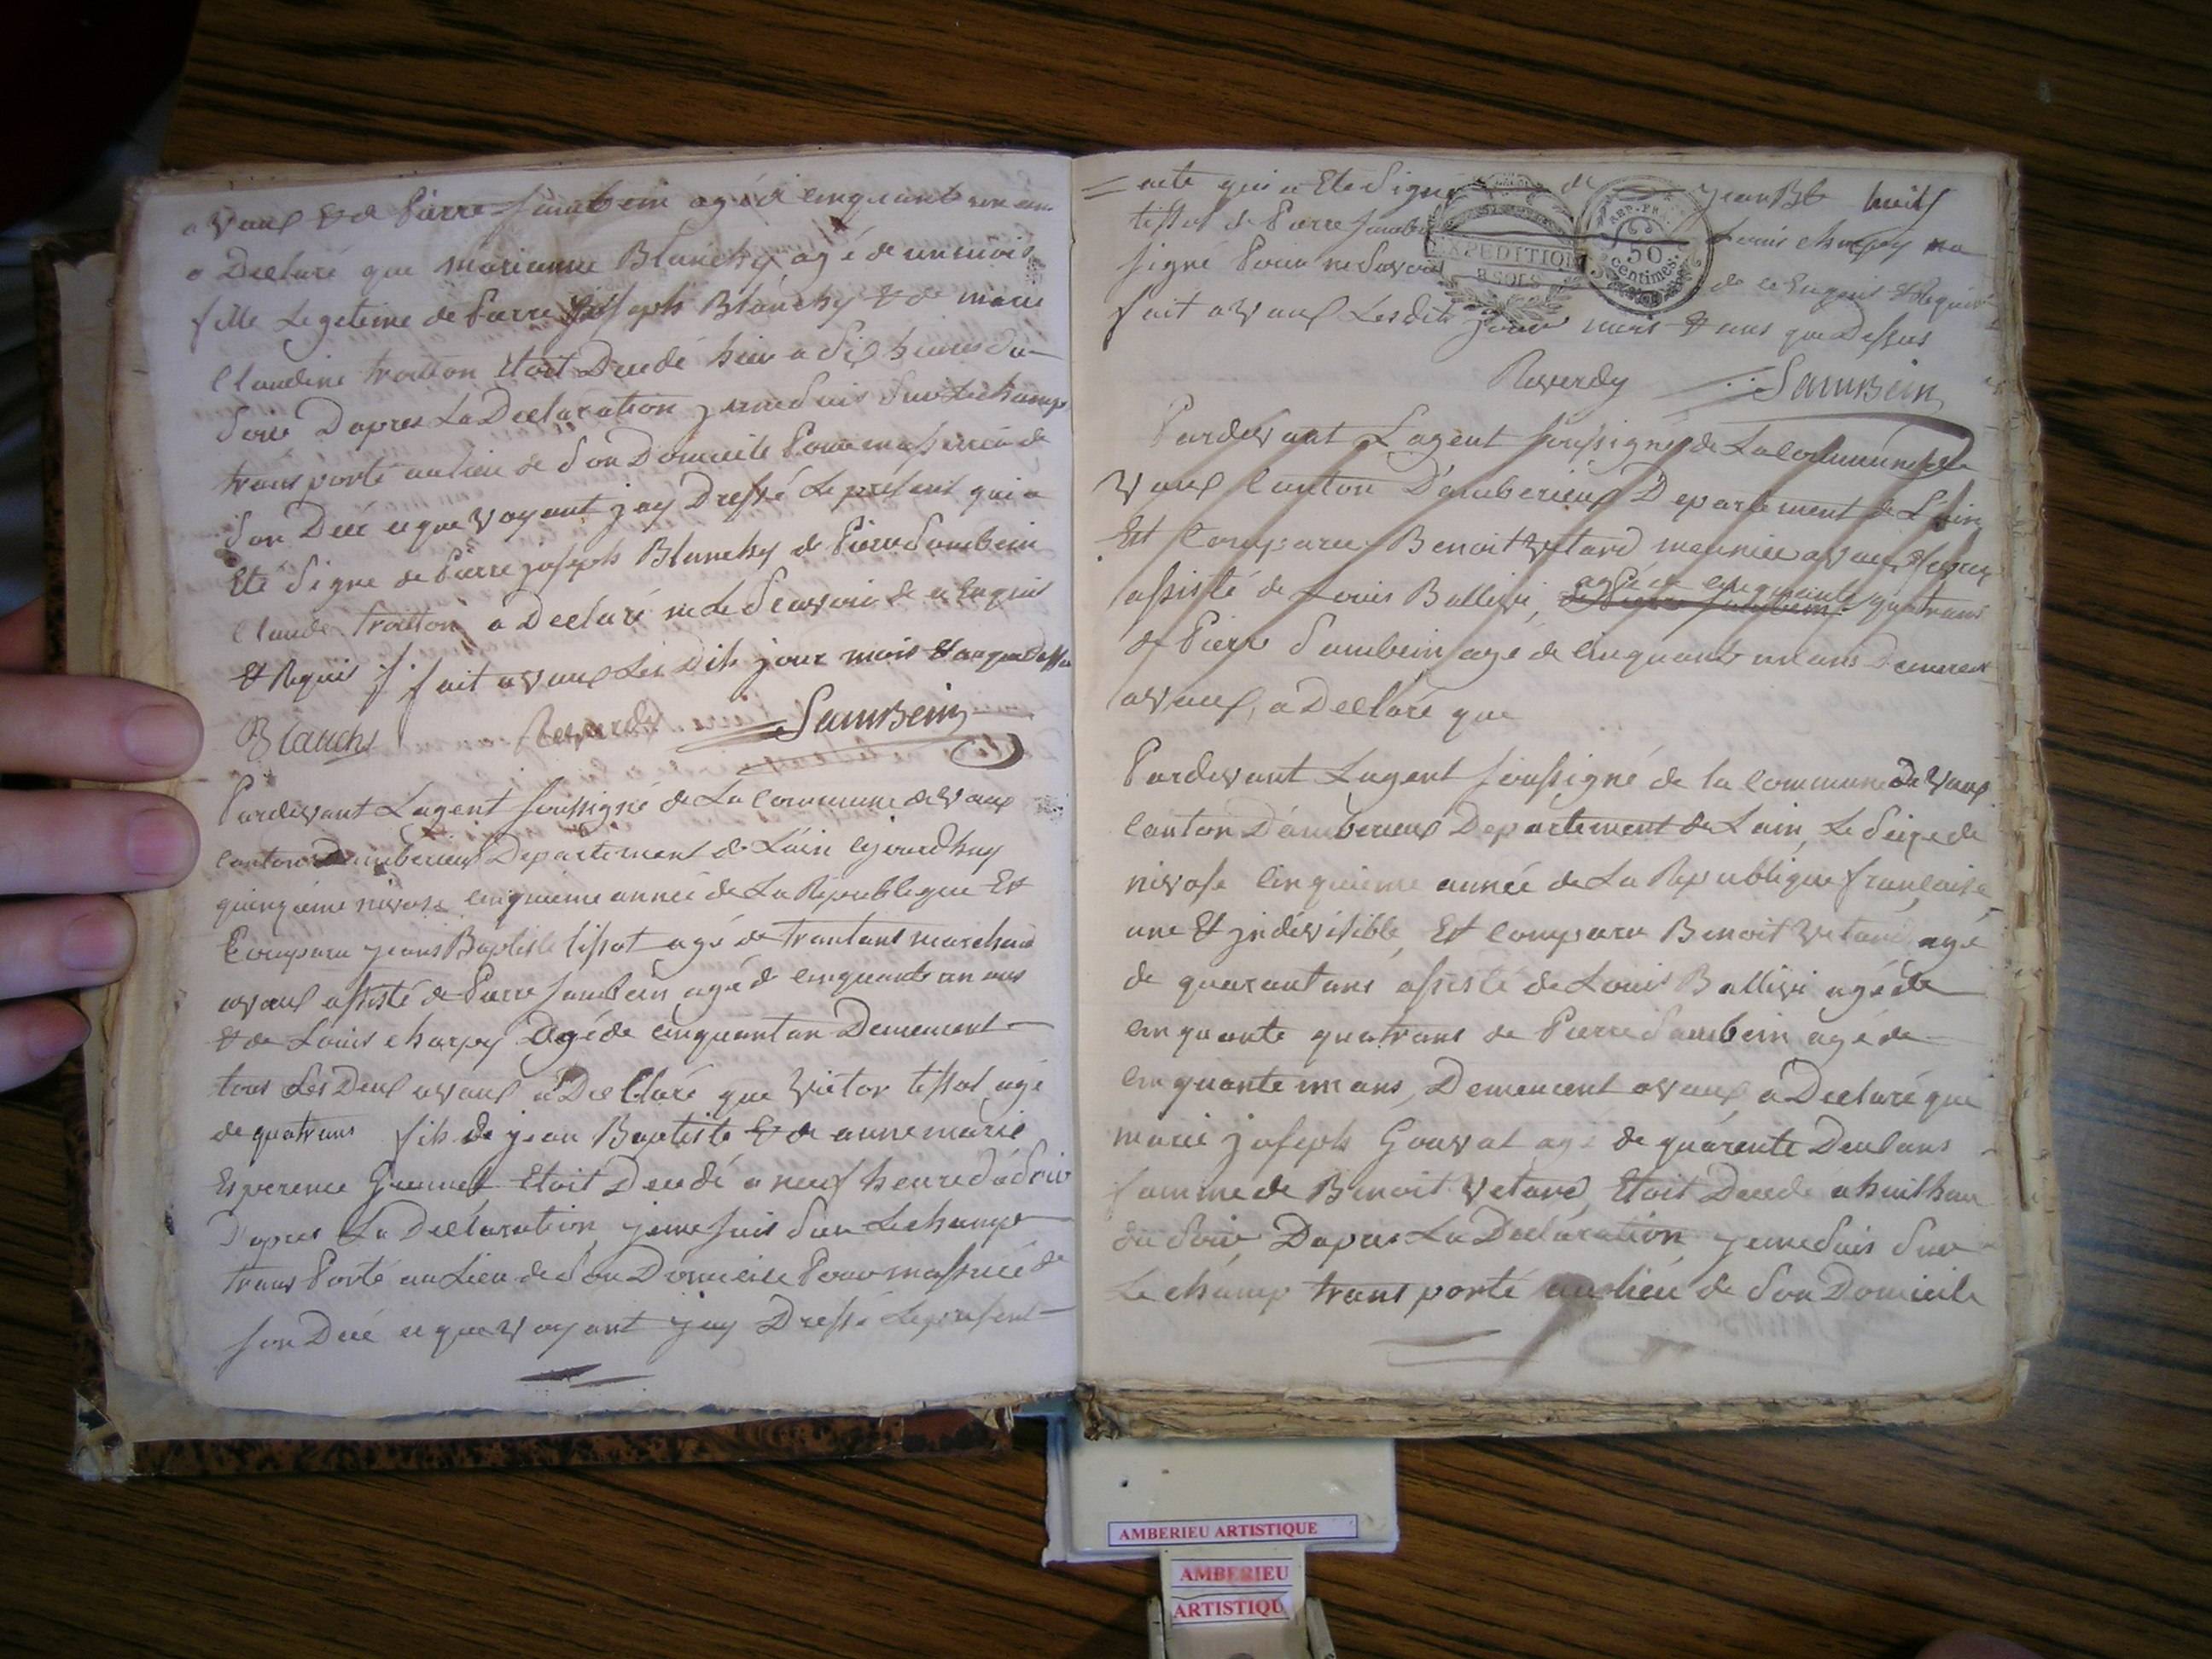 avaux & de Pierre Jambein agé de cinquant un ans
a Declaré que marianne Blanchy agé de un mois
fille Legeteime de Pierre joseph Blanchy & de marie
Claudine trotton Etoit Decedé hier a dix heures du
Soir Dapres La Declaration je me suis sur Le champ
transporté au lieu de son Domicile Pour massurer de
Son Decé ce que voyant jay Dressé Le present qui a
Eté Signe de Pierre joseph Blanchy de Pierre Sambein
Claude trotton a Declaré ne Le Scavoir de ce Enquis
& Requis fait avaux Les Dits jour mois & an que Dessu
Blanchy Reverdy SamBein
Pardevant Lagent soussigné de La Commune de vaux
canton Damberieux Departement de Lain cejourdhuy
quinzieme nivose cinquieme année de La Republique Est
Comparu jean Baptiste tissot agé de trantans marchand
avaux assisté de Pierre Jambein agé de cinquante un ans
& de Louis charpy agé de cinquant an Demeurent
tous Les Deux avaux a Declaré que victor tissot agé
de quatrans fils de jean Baptiste & de anne marie
Esperence Etoit Decedé a neuf heure du Soir
Dapres La Declaration je me suis sur Le champ
trans Porté au Lieu de Son Domicile Pour massurer de
son Decé ce que voyant jay Dressé Le present
acte qui a Ete Signé de jean Bte
tissot de Pierre Jambein Louis charpy na
signé Pour ne Savoir de ce Enquis & Requis
fait avaux Lesdits jour mois & ans que Dessus
EXPEDITION
8 SOLS
50
centimes.
Reverdy SamBein
Pardevant Lagent soussigné de La Commune de
vaux Canton Damberieux Departement de Lain
Est Comparu Benoit vetard meunier avaux
assisté de Louis Ballivi, agé de cinquante quatrans
& Pierre Sambein agé de cinquante un ans Demeurent
avaux, a Declaré que
Pardevant Lagent soussigné de la Commune de vaux
canton Damberieux Departement de Lain, Le Seize de
nivose Cinquieme année de La Republique francaise
une & jndivisible, Est Comparu Benoit vetard agé
de quarantans assisté de Louis Ballivi agé de
cinquante quatrans de Pierre Sambein agé de
cinquante un ans, Demeurent avaux, a Declaré que
marie joseph Gouvat agé de quarente Deux ans
famme de Benoit vetard, Etoit Decedé a huit heur
du Soir, Dapres La Declaration je me Suis Sur
Le champ transporté au lieu de Son Domicile
AMBERIEU ARTISTIQUE
AMBERIEU
ARTISTIQU